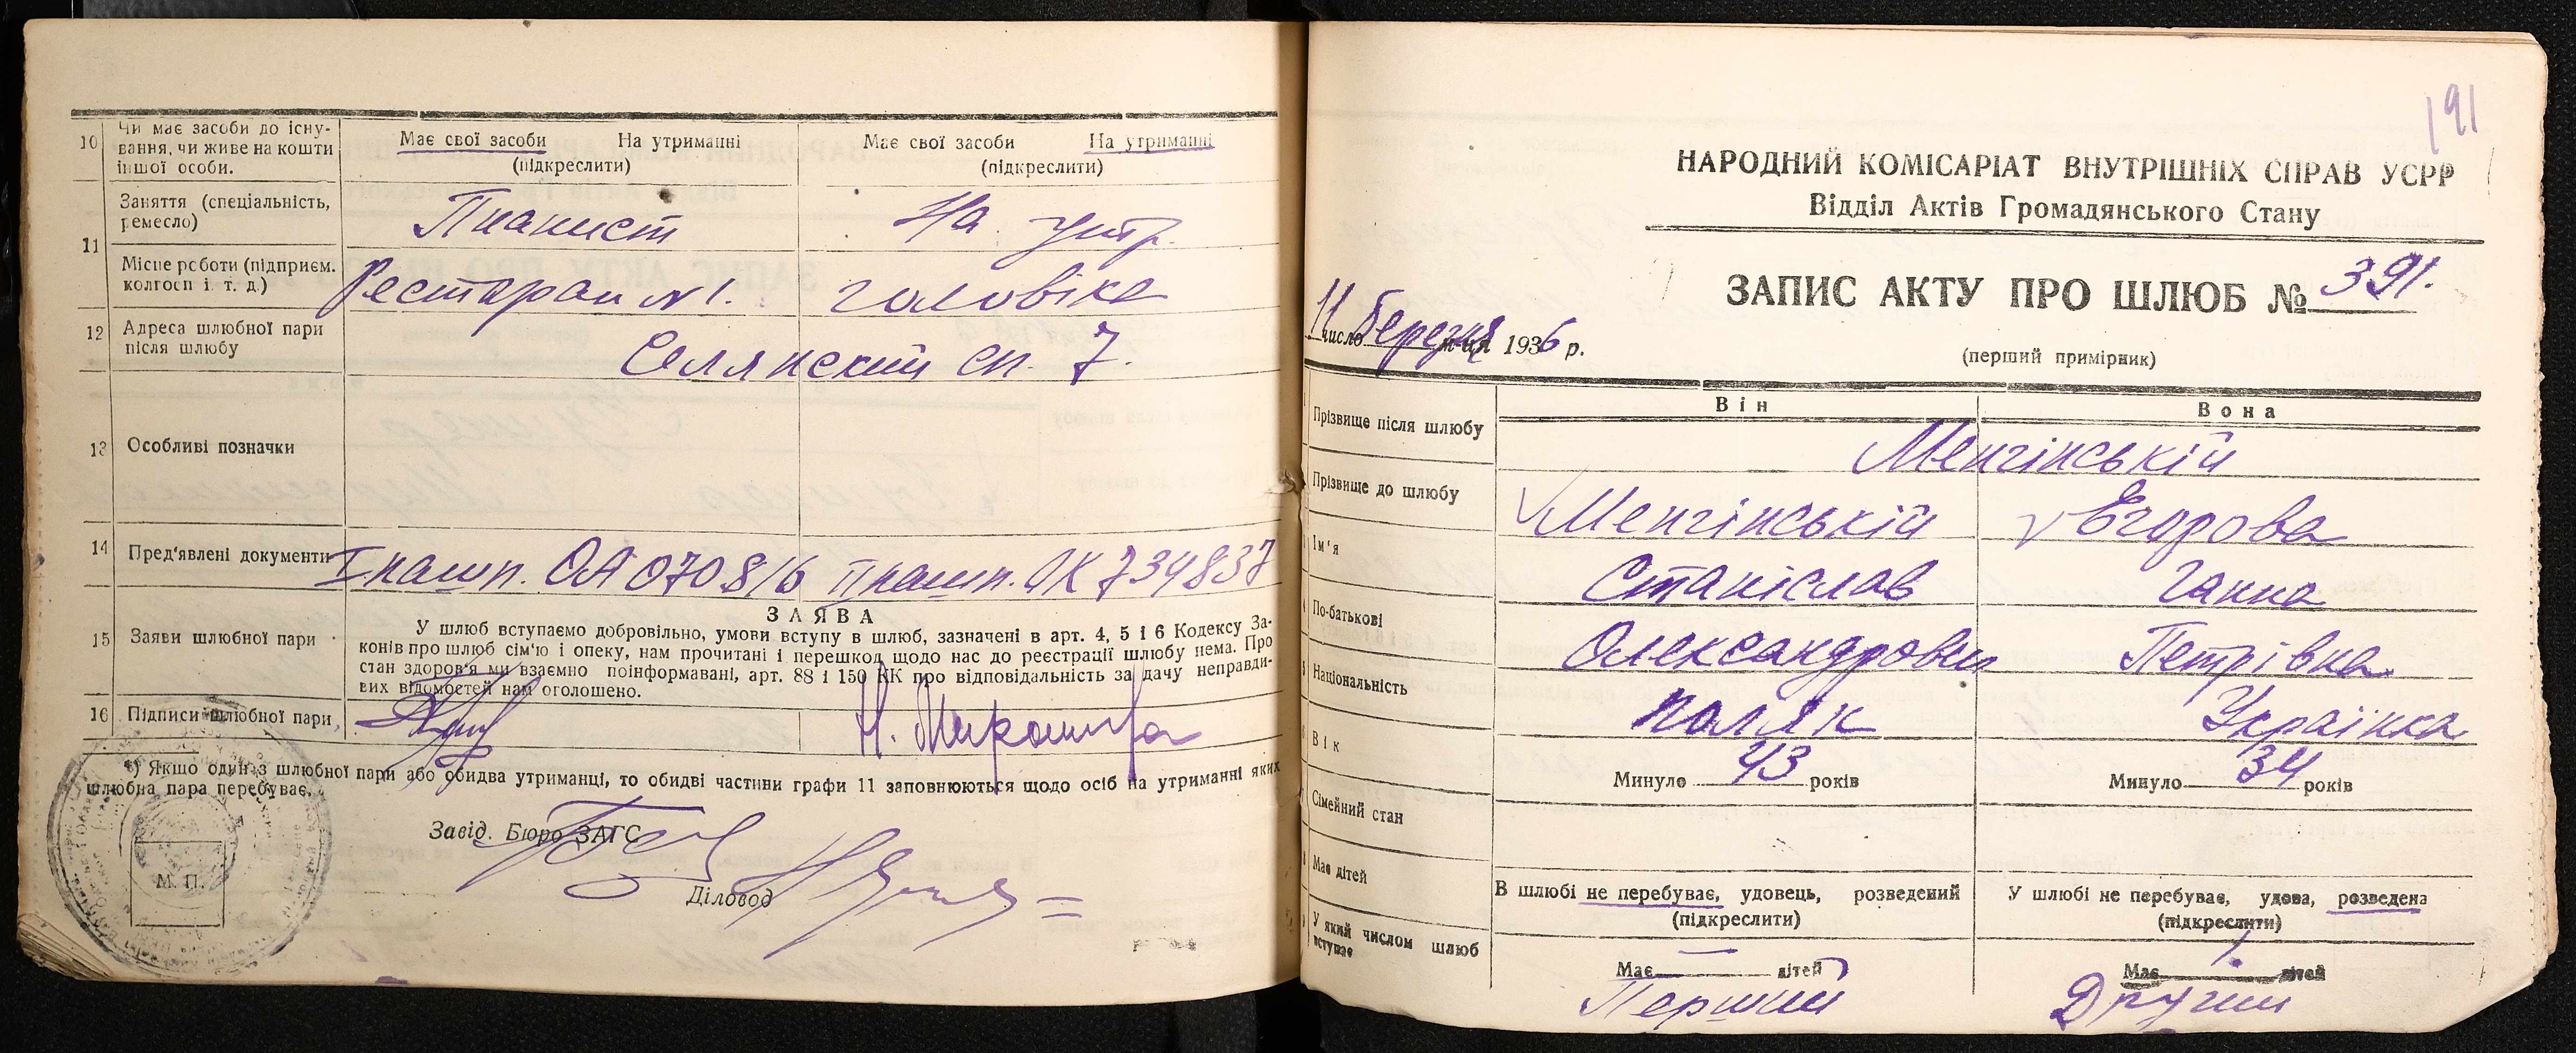 10 Чи має засоби до існу-
вання, чи живе на кошти
іншої особи.
Має свої засоби На утриманні
(підкреслити)
Має свої засоби На утриманні
(підкреслити)
11 Заняття (спеціальність,
ремесло)
Пианист
На утр.
Місце роботи (підприєм.
колгосп і. т. д.)
Ресторан №1.
головіка
12 Адреса шлюбної пари
після шлюбу
Селянский сп. 7.
13 Особливі позначки
14 Пред'явлені документи
I пашп. ОА 070816 II пашп. ЛК 734837
15 Заяви шлюбної пари
ЗАЯВА
У шлюб вступаємо добровільно, умови вступу в шлюб, зазначені в арт. 4, 5 і 6 Кодексу За-
конів про шлюб сім'ю і опеку, нам прочитані і перешкод щодо нас до реєстрації шлюбу нема. Про
стан здоров'я ми взаємно поінформавані, арт. 88 і 150 КК про відповідальність за дачу неправди-
вих відомостей нам оголошено.
16 Підписи шлюбної пари
*) Якщо один з шлюбної пари або обидва утриманці, то обидві частини графи 11 заповнюються щодо осіб на утриманні яких
шлюбна пара перебуває.
Завід. Бюро ЗАГС
Діловод
М. П.
191
НАРОДНИЙ КОМІСАРІАТ ВНУТРІШНІХ СПРАВ УСРР
Відділ Актів Громадянського Стану
ЗАПИС АКТУ ПРО ШЛЮБ № 391.
11 число Березня м-ця 1936 р.
(перший примірник)
Він
Вона
Прізвище після шлюбу
Менгінській
Прізвище до шлюбу
Менгінській
Єгорова
Ім'я
Станіслав
Ганна
По-батькові
Олександрович
Петрівна
Національність
поляк
Українка
Вік
Минуло 43 років
Минуло 34 років
Сімейний стан
В шлюбі не перебуває, удовець, розведений
(підкреслити)
У шлюбі не перебуває, удова, розведена
(підкреслити)
Має дітей
Має — дітей
Має 1. дітей
У який числом шлюб
вступає
Перший
Другий